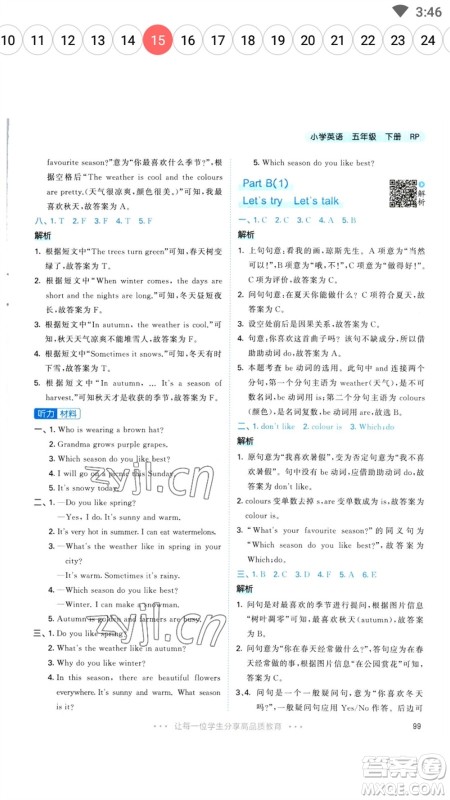 3:46
10 11 12 13 14 15 16 17 18 19 20 21 22 23 24
小学英语 五年级 下册 RP
favourite season?"可知，你最喜欢什么季节？故答案为 F。
根据空格后"The weather is cool and the colours
are pretty.(天气很凉爽，颜色很美。)
故答案为 A。
八、1. T 2. F 3. F 4. T 5. F
解析
1. 根据短文中"The trees turn green"可知，春天树变
绿了，故答案为 T。
2. 根据短文中"When winter comes, the days are
short and the nights are long."可知，冬天昼短夜
长，故答案为 F。
3. 根据短文中"In autumn, the weather is cool."可
知，秋天天气凉爽不能堆雪人，故答案为 F。
4. 根据短文中"Sometimes it snows."可知，冬天有时
下雪，故答案为 T。
5. 根据短文中"In autumn, ... It's a season of
harvest."可知秋天才是收获的季节，故答案为 F。
听力 材料
一、1. Who is wearing a brown hat?
2. Grandma grows purple grapes.
3. Which season do you like best?
4. I will go on a picnic this Sunday.
5. It's snowy today.
二、1. —Do you like spring?
—Yes, I do. It's sunny and warm.
2. It's very hot in summer. I can eat watermelons.
3. —What's the weather like in spring in your
city?
—It's warm. Sometimes it's rainy.
4. —Which season do you like best?
—Winter. I can make a snowman.
5. Autumn is golden and farmers are busy.
三、1. Do you like spring?
2. What is the weather like in autumn?
3. Why do you like winter?
4. In this season, there are beautiful flowers
everywhere. It's sunny and warm. What season
is it?
5. Which season do you like best?
Part B(1)
Let's try Let's talk
扫码
一、1. C 2. A 3. C 4. C 5. A
解析
1. 上句句意：看我的画，琼斯先生。A 项意为"当然
可以！"B 项意为"哦，不！"C 项意为"画得好。"
C 项为评价，故答案为 C。
2. 问句句意：在夏天你能做什么？故答案为 A。
3. 设空处前后是因果关系。故答案为 C。
4. 句意：你喜欢这首曲子吗？该句不缺成分，所以
借助助动词 do，故答案为 C。
5. 本题考查 be 动词的选用。此句句中 and 连接两
个分句，第一个分句主语为 weather(天气)，为不
可数名词，be 动词用 is；第二个分句主语为 colours
(颜色)，是复数，be 动词用 are。故答案为 A。
二、1. don't like 2. colour is 3. Which; do
解析
1. 肯定句句意为"我喜欢暑假"，变为否定句意为"我不
喜欢暑假"，需借助助动词 don't，故答案为 don't like。
2. colours 变单数去掉 s，are 变单数是 is，故答案为
colour is。
3. "What's your favourite season?"的同义句为
"Which season do you like best?"，故答案为
Which; do。
三、1. B 2. D 3. C 4. A 5. A 6. E
解析
1. 问句是对最喜欢的季节进行提问，根据图片信息
"树叶凋零"可知，最喜欢的季节是秋天，故答案为 B。
2. 问句句意为"你在春天经常做什么？"你在春天
经常做的事情，根据图片信息"在公园赏花"可知，
故答案为 D。
3、4. 问句是一个一般疑问句，意为"你喜欢冬天
吗？"，一般疑问句的回答要用 yes 或 no，根据图片可
让每一位学生分享高品质教育
99
zyjl.cn
zyjl.cn